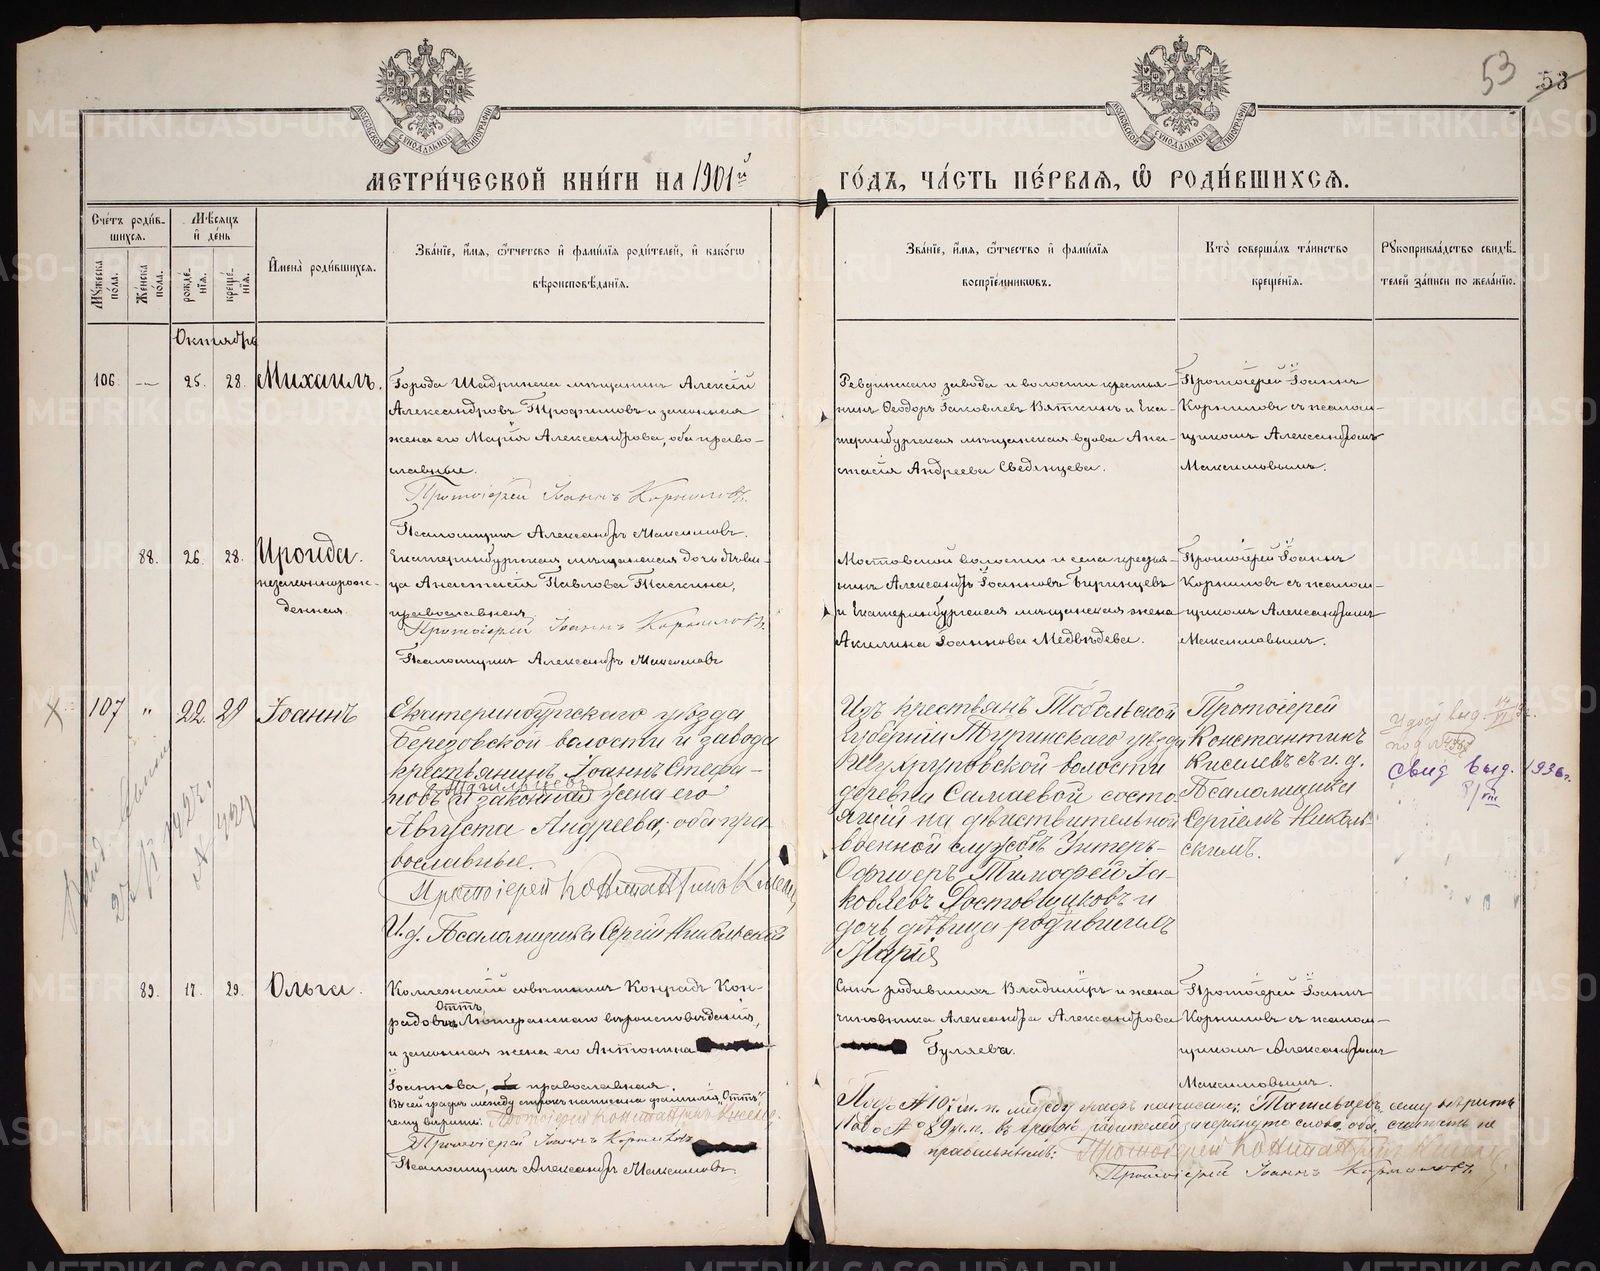 53
53
МЕТРИ́ЧЕСКОЙ КНИ́ГИ НА 1901й ГО́ДЪ, ЧА́СТЬ ПЕ́РВАѦ, Ѽ РОДИ́ВШИХСѦ.
Сче́тъ роди́в-
шихся.
Мѣ́сяцъ
и де́нь
Му́жеска по́ла.
Же́нска по́ла.
рожде́-
нїя.
креще́-
нїя.
Имена̀ роди́вшихся.
Зва́нїе, и́мя, ѻ́тчество и фами́лїя роди́телей, и како́гѡ
вѣроисповѣ́данїя.
Зва́нїе, и́мя, ѻ́тчество и фами́лїя
воспрїе́мникѡвъ.
Кто̀ соверша́лъ та́инство
креще́нїя.
Рꙋкоприкла́дство свидѣ́-
телей за́писи по жела́нїю.
Октябрь
106.
—
25.
28.
Михаилъ.
Города Шадринска мѣщанинъ Алексій
Александровъ Трофимовъ и законная
жена его Марія Александрова, оба право-
славные.
Протоіерей Іоаннъ Корниловъ.
Псаломщикъ Александръ Максимовъ.
Ревдинскаго завода и волости крестья-
нинъ Ѳеодоръ Іаковлевъ Вяткинъ и Ека-
теринбургская мѣщанская вдова Ана-
стасія Андреева Сведенцева.
Протоіерей Іоаннъ
Корниловъ съ псалом-
щикомъ Александромъ
Максимовымъ.
88.
26.
28.
Ироида.
незаконнорож-
денная.
Екатеринбургская мѣщанская дочь дѣви-
ца Анастасія Павлова Таскина,
православная
Протоіерей Іоаннъ Корниловъ.
Псаломщикъ Александръ Максимовъ
Мостовской волости и села крестья-
нинъ Александръ Іоанновъ Биринцевъ
и Екатеринбургская мѣщанская жена
Акилина Іоаннова Медвѣдева.
Протоіерей Іоаннъ
Корниловъ съ псалом-
щикомъ Александромъ
Максимовымъ.
107
"
22.
29
Іоаннъ
Екатеринбургскаго уѣзда
Березовской волости и завода
крестьянинъ Іоаннъ Стефа-
новъ Тагильцевъ и законная жена его
Августа Андреева; оба пра-
вославные.
Протоіерей Константинъ
И. д. Псаломщика Сергій Никольскій
Изъ крестьянъ Тобольской
губерніи Туринскаго уѣзда
Шухруповской волости
деревни Самаевой состо-
ящій на дѣйствительной
военной службѣ Унтеръ-
Офицеръ Тимофей Іа-
ковлевъ Ростовщиковъ и
дочь дѣвица родившихъ
Марія
Протоіерей
Константинъ
Киселевъ съ и. д.
Псаломщика
Сергіемъ Николь-
скимъ.
свид выд. 1936г.
89.
17.
29.
Ольга.
Коллежскій совѣтникъ Конрадъ Кон-
радовъ Оттъ Лютеранскаго вѣроисповѣданія,
и законная жена его Антонина
Іоаннова, православная.
Въ сей графѣ между строкъ написана фамилія „Оттъ"
чему вѣрить: Протоіерей Константинъ
Протоіерей Іоаннъ Корниловъ
Псаломщикъ Александръ Максимовъ
Сынъ родившихъ Владиміръ и жена
чиновника Александра Александрова
Гуляева.
Протоіерей Іоаннъ
Корниловъ съ псалом-
щикомъ Александромъ
Максимовымъ.
Подъ № 107 м. п. между графъ написано: Тагильцевъ, сему вѣрить
Подъ № 89 ж. п. въ графѣ родителей зачеркнуто слово: оба, считать не
правильнымъ: Протоіерей Константинъ
Протоіерей Іоаннъ Корниловъ.